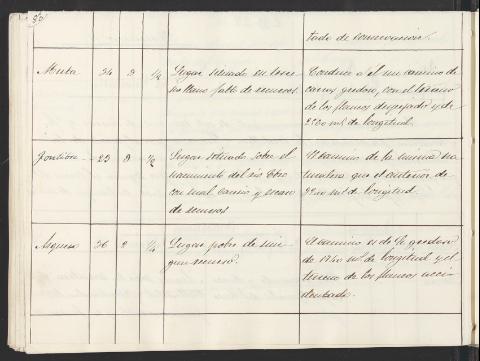 tado de conservacion.
24 3 1/2 Lugar situado en terre
no llano falto de recursos.
Conduce a el un camino de
carros gredoso, con el terreno
de los flancos despejado y de
mts. de longitud.
Fontibre 25 3 1/2 Lugar situado sobre el
nacimiento del rio Ebro
con mal camino y escaso
de recursos
El camino de la misma na
turaleza que el anterior de
mts. de longitud.
Argueso 26 2 1/4 Lugar pobre de nin
gun recurso.
El camino es de gredoso
de 1740 mts. de longitud y el
terreno de los flancos acci
dentado.